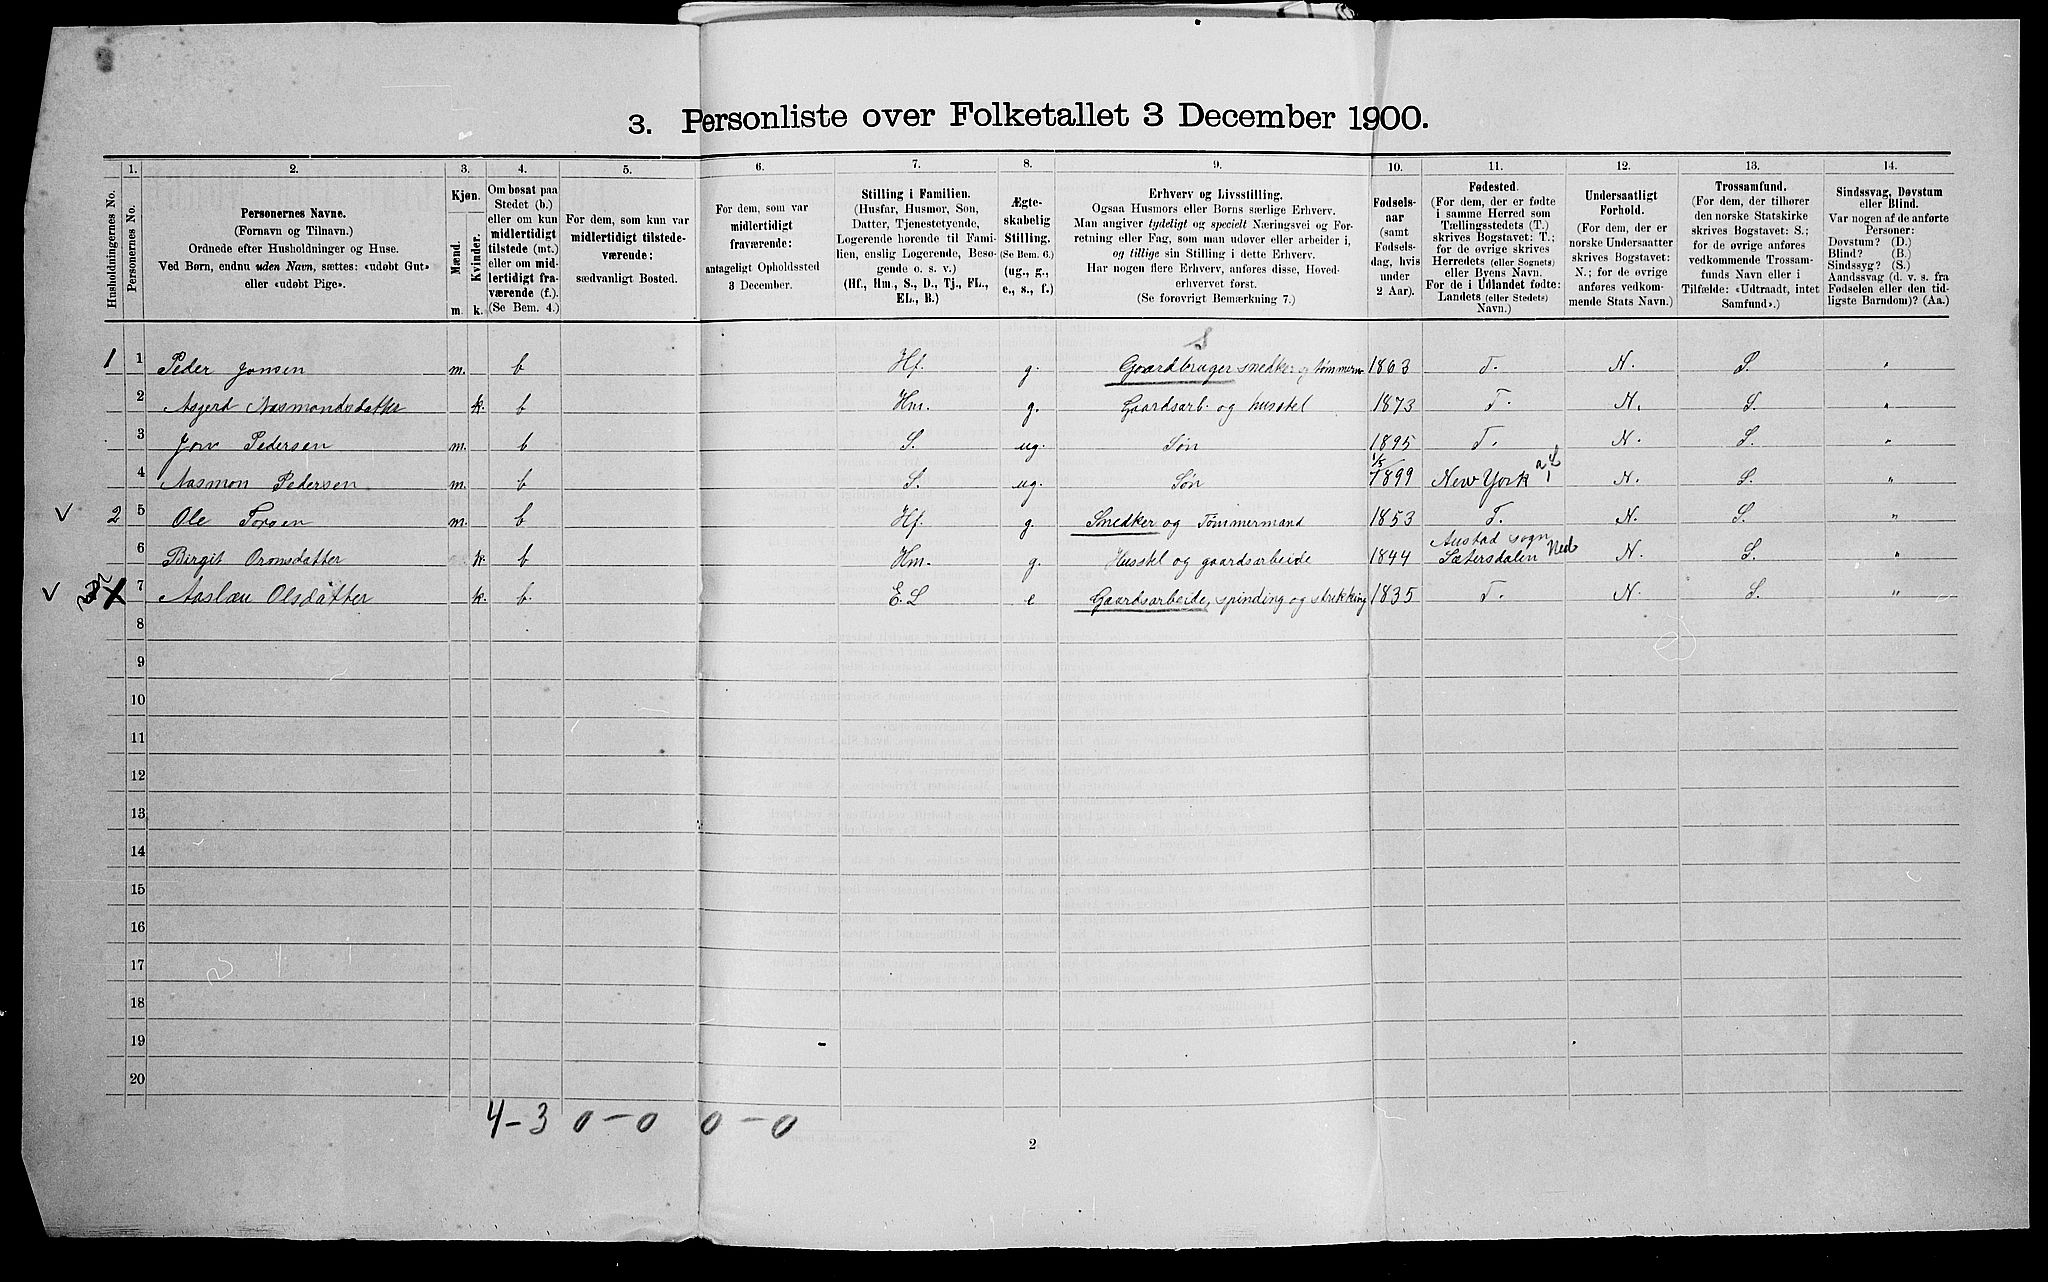 3. Personliste over Folketallet 3 December 1900.
1. 2. 3. 4. 5. 6. 7. 8. 9. 10. 11. 12. 13. 14.
Husholdningernes No.
Personernes No.
Personernes Navne.
(Fornavn og Tilnavn.)
Ordnede efter Husholdninger og Huse.
Ved Børn, endnu uden Navn, sættes: «udøbt Gut»
eller «udøbt Pige».
Kjøn.
Mænd.
Kvinder.
m. k.
Om bosat paa
Stedet (b.)
eller om kun
midlertidigt
tilstede (mt.)
eller om mid-
lertidigt fra-
værende (f.).
(Se Bem. 4.)
For dem, som kun var
midlertidigt tilstede-
værende:
sædvanligt Bosted.
For dem, som var
midlertidigt
fraværende:
antageligt Opholdssted
3 December.
Stilling i Familien.
(Husfar, Husmor, Søn,
Datter, Tjenestetyende,
Logerende hørende til Fami-
lien, enslig Logerende, Besø-
gende o. s. v.)
(Hf., Hm., S., D., Tj., FL.,
EL., B.)
Ægte-
skabelig
Stilling.
(Se Bem. 6.)
(ug., g.,
e., s., f.)
Erhverv og Livsstilling.
Ogsaa Husmors eller Børns særlige Erhverv.
Man angiver tydeligt og specielt Næringsvei og For-
retning eller Fag, som man udover eller arbeider i,
og tillige sin Stilling i dette Erhverv.
Har nogen flere Erhverv, anføres disse, Hoved-
erhvervet først.
(Se forøvrigt Bemærkning 7.)
Fødsels-
aar
(samt
Fødsels-
dag, hvis
under
2 Aar).
Fødested.
(For dem, der er fødte
i samme Herred som
Tællingsstedets (T.)
skrives Bogstavet: T.;
for de øvrige skrives
Herredets (eller Sognets)
eller Byens Navn.
For de i Udlandet fødte:
Landets (eller Stedets)
Navn.)
Undersaatligt
Forhold.
(For dem, der er
norske Undersaatter
skrives Bogstavet:
N.; for de øvrige
anføres vedkom-
mende Stats Navn.)
Trossamfund.
(For dem, der tilhører
den norske Statskirke
skrives Bogstavet: S.;
for de øvrige anføres
vedkommende Trossam-
funds Navn eller i
Tilfælde: «Udtraadt, intet
Samfund».)
Sindssvag, Døvstum
eller Blind.
Var nogen af de anførte
Personer:
Døvstum? (D.)
Blind? (B.)
Sindssyg? (S.)
Aandssvag (d. v. s. fra
Fødselen eller den tid-
ligste Barndom)? (Aa.)
S
1 1 Peder Jonsen m. b Hf. g. Gaardbruger snedker og tømmerm 1863 T. N. S. "
2 Asgerd Aasmondsdatter k. b Hm. g. Gaardsarb. og husstel 1873 T. N. S. "
3 Jon Pedersen m. b S. ug. Søn 1895 T. N. S. "
4 Aasmon Pedersen m. b S. ug. Søn 1/5 1899 New York N. S. "
V 2 5 Ole Torsen m. b Hf. g. Snedker og Tømmermand 1853 T. N. S. "
6 Birgit Oromsdatter k. b Hm. g. Husstel og gaardsarbeide 1844 Austad sogn Sætersdalen Ned N. S. "
V 7 Aaslau Olsdatter k. b. E.L e Gaardsarbeide, spinding og strikking 1835 T. N. S. "
8
9
10
11
12
13
14
15
16
17
18
19
20
4-3 0-0 0-0
2